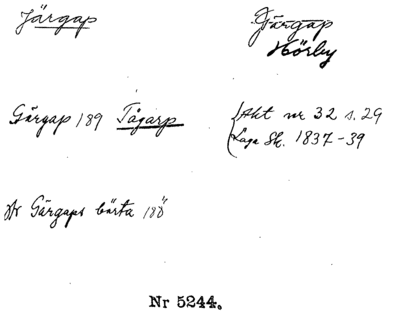 Järgap
Järgap
Hörby
Gärgap 189 Tågarp
Akt nr 32 s. 29
Laga Sk. 1837-39
Gärgaps bärta 188
Nr 5244.